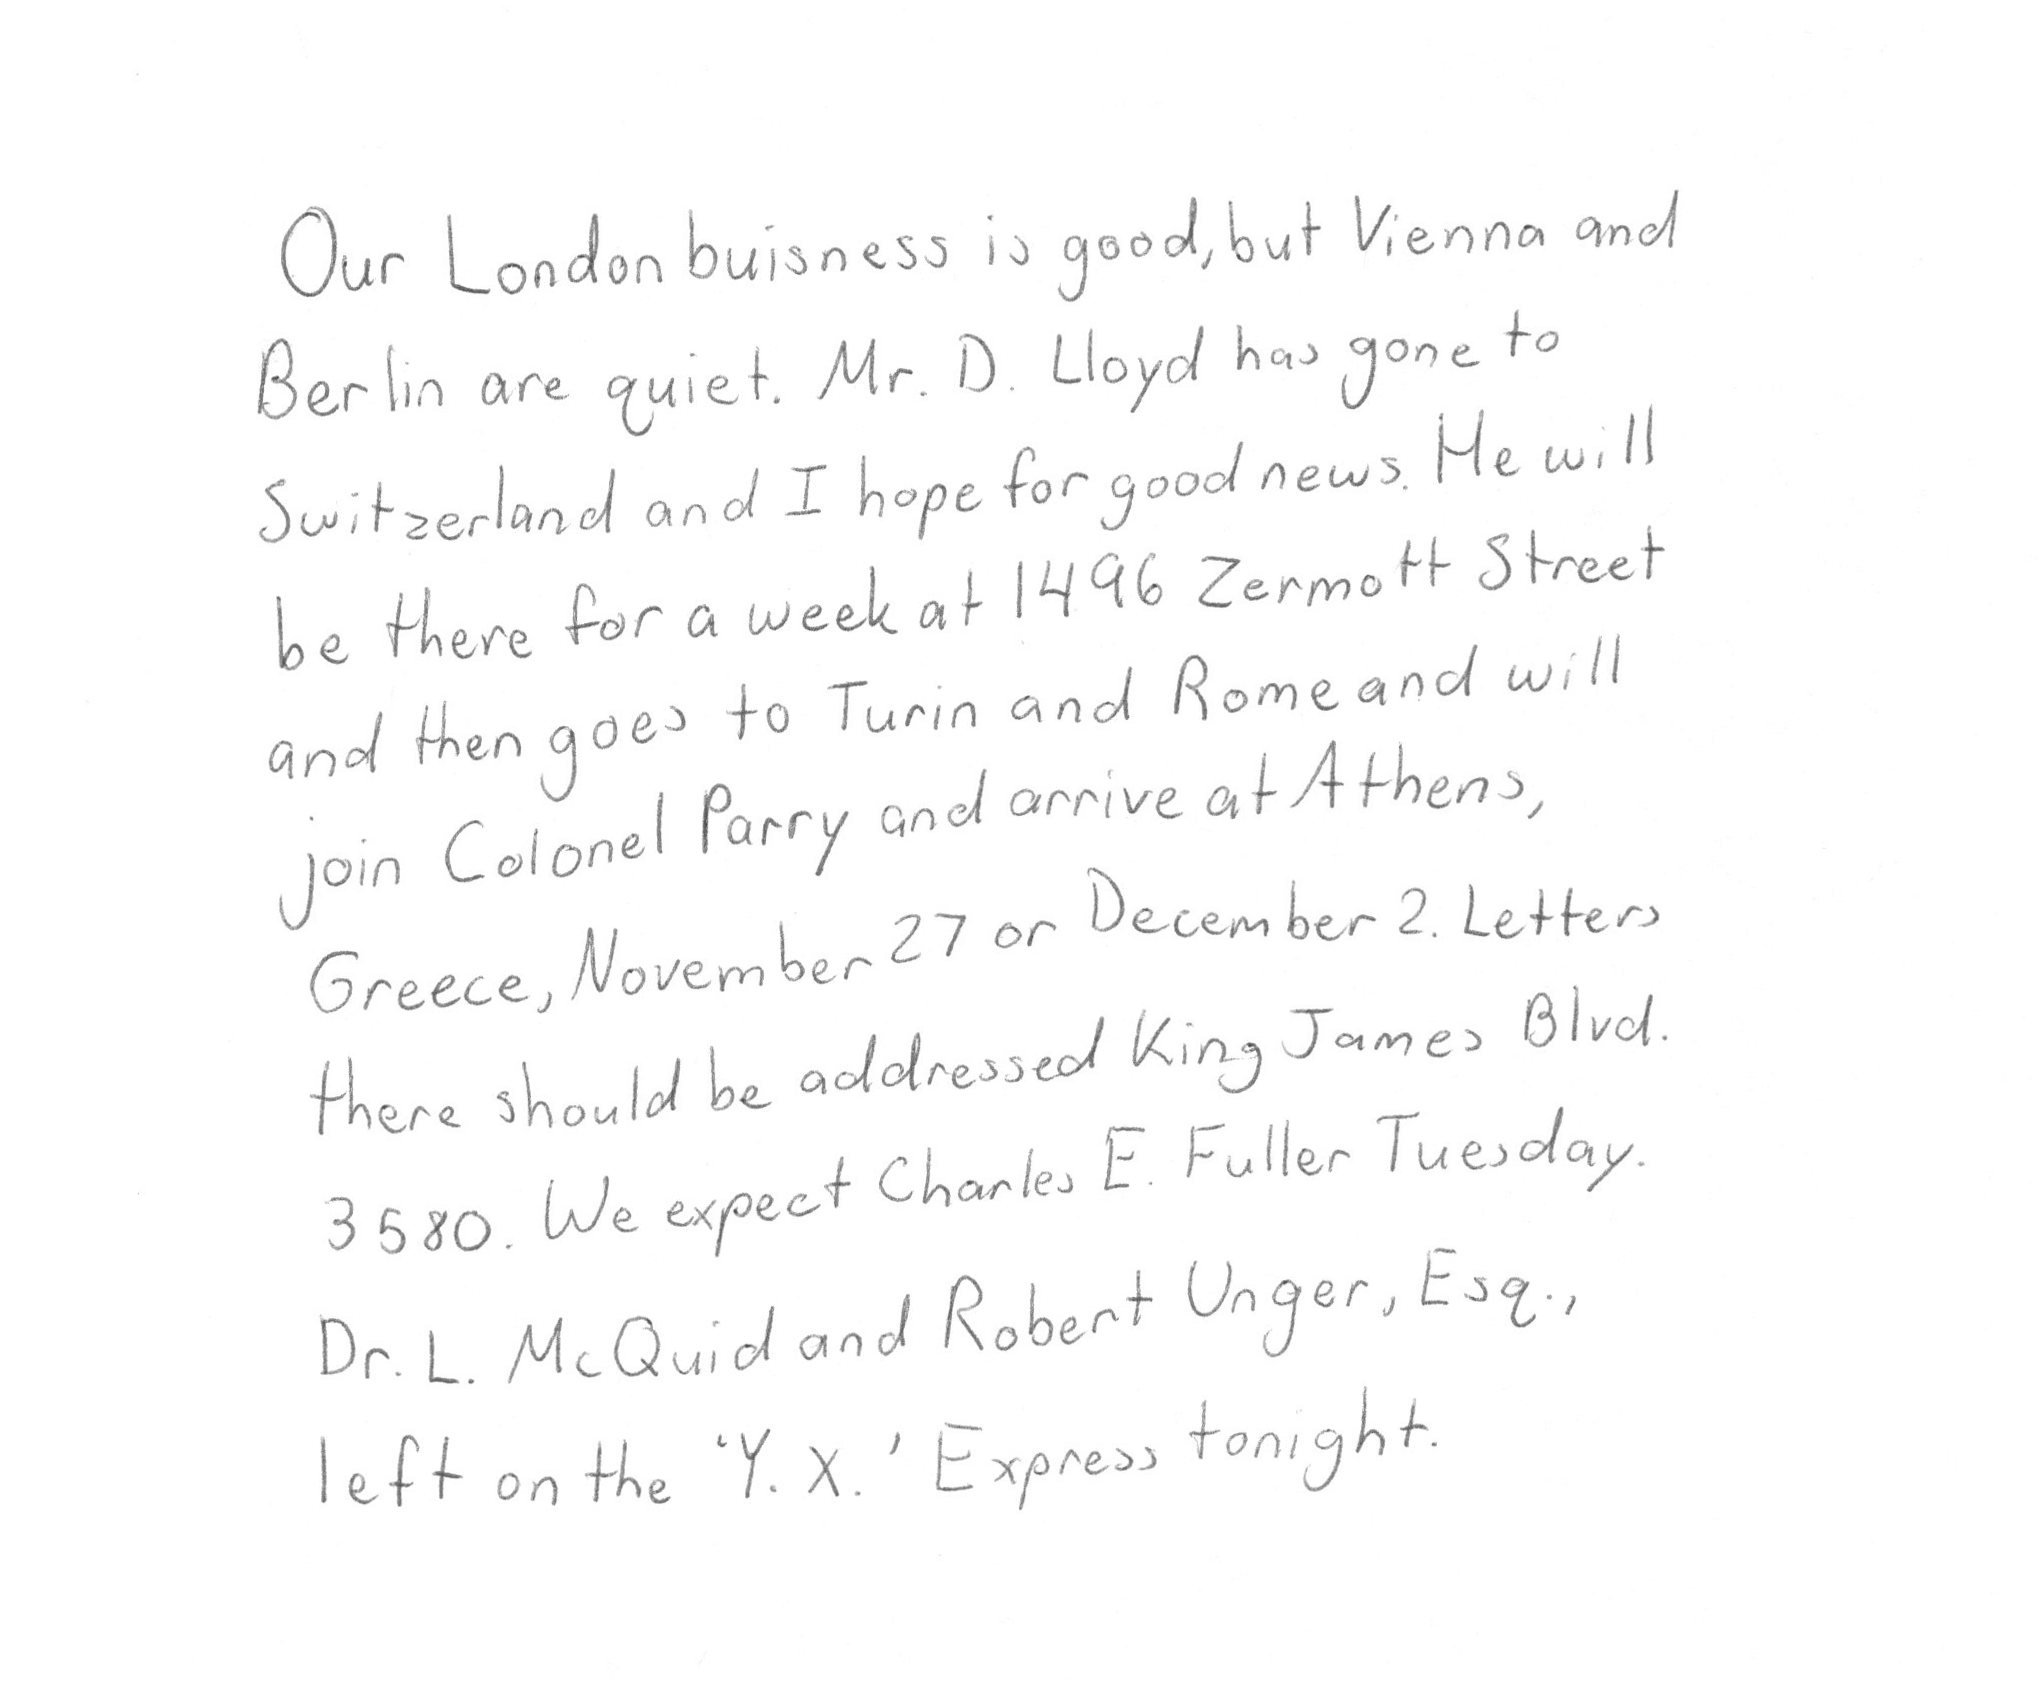 Our London buisness is good, but Vienna and
Berlin are quiet. Mr. D. Lloyd has gone to
Switzerland and I hope for good news. He will
be there for a week at 1496 Zermott Street
and then goes to Turin and Rome and will
join Colonel Parry and arrive at Athens,
Greece, November 27 or December 2. Letters
there should be addressed King James Blvd.
3580. We expect Charles E. Fuller Tuesday.
Dr. L. McQuid and Robert Unger, Esq.,
left on the 'Y. X.' Express tonight.